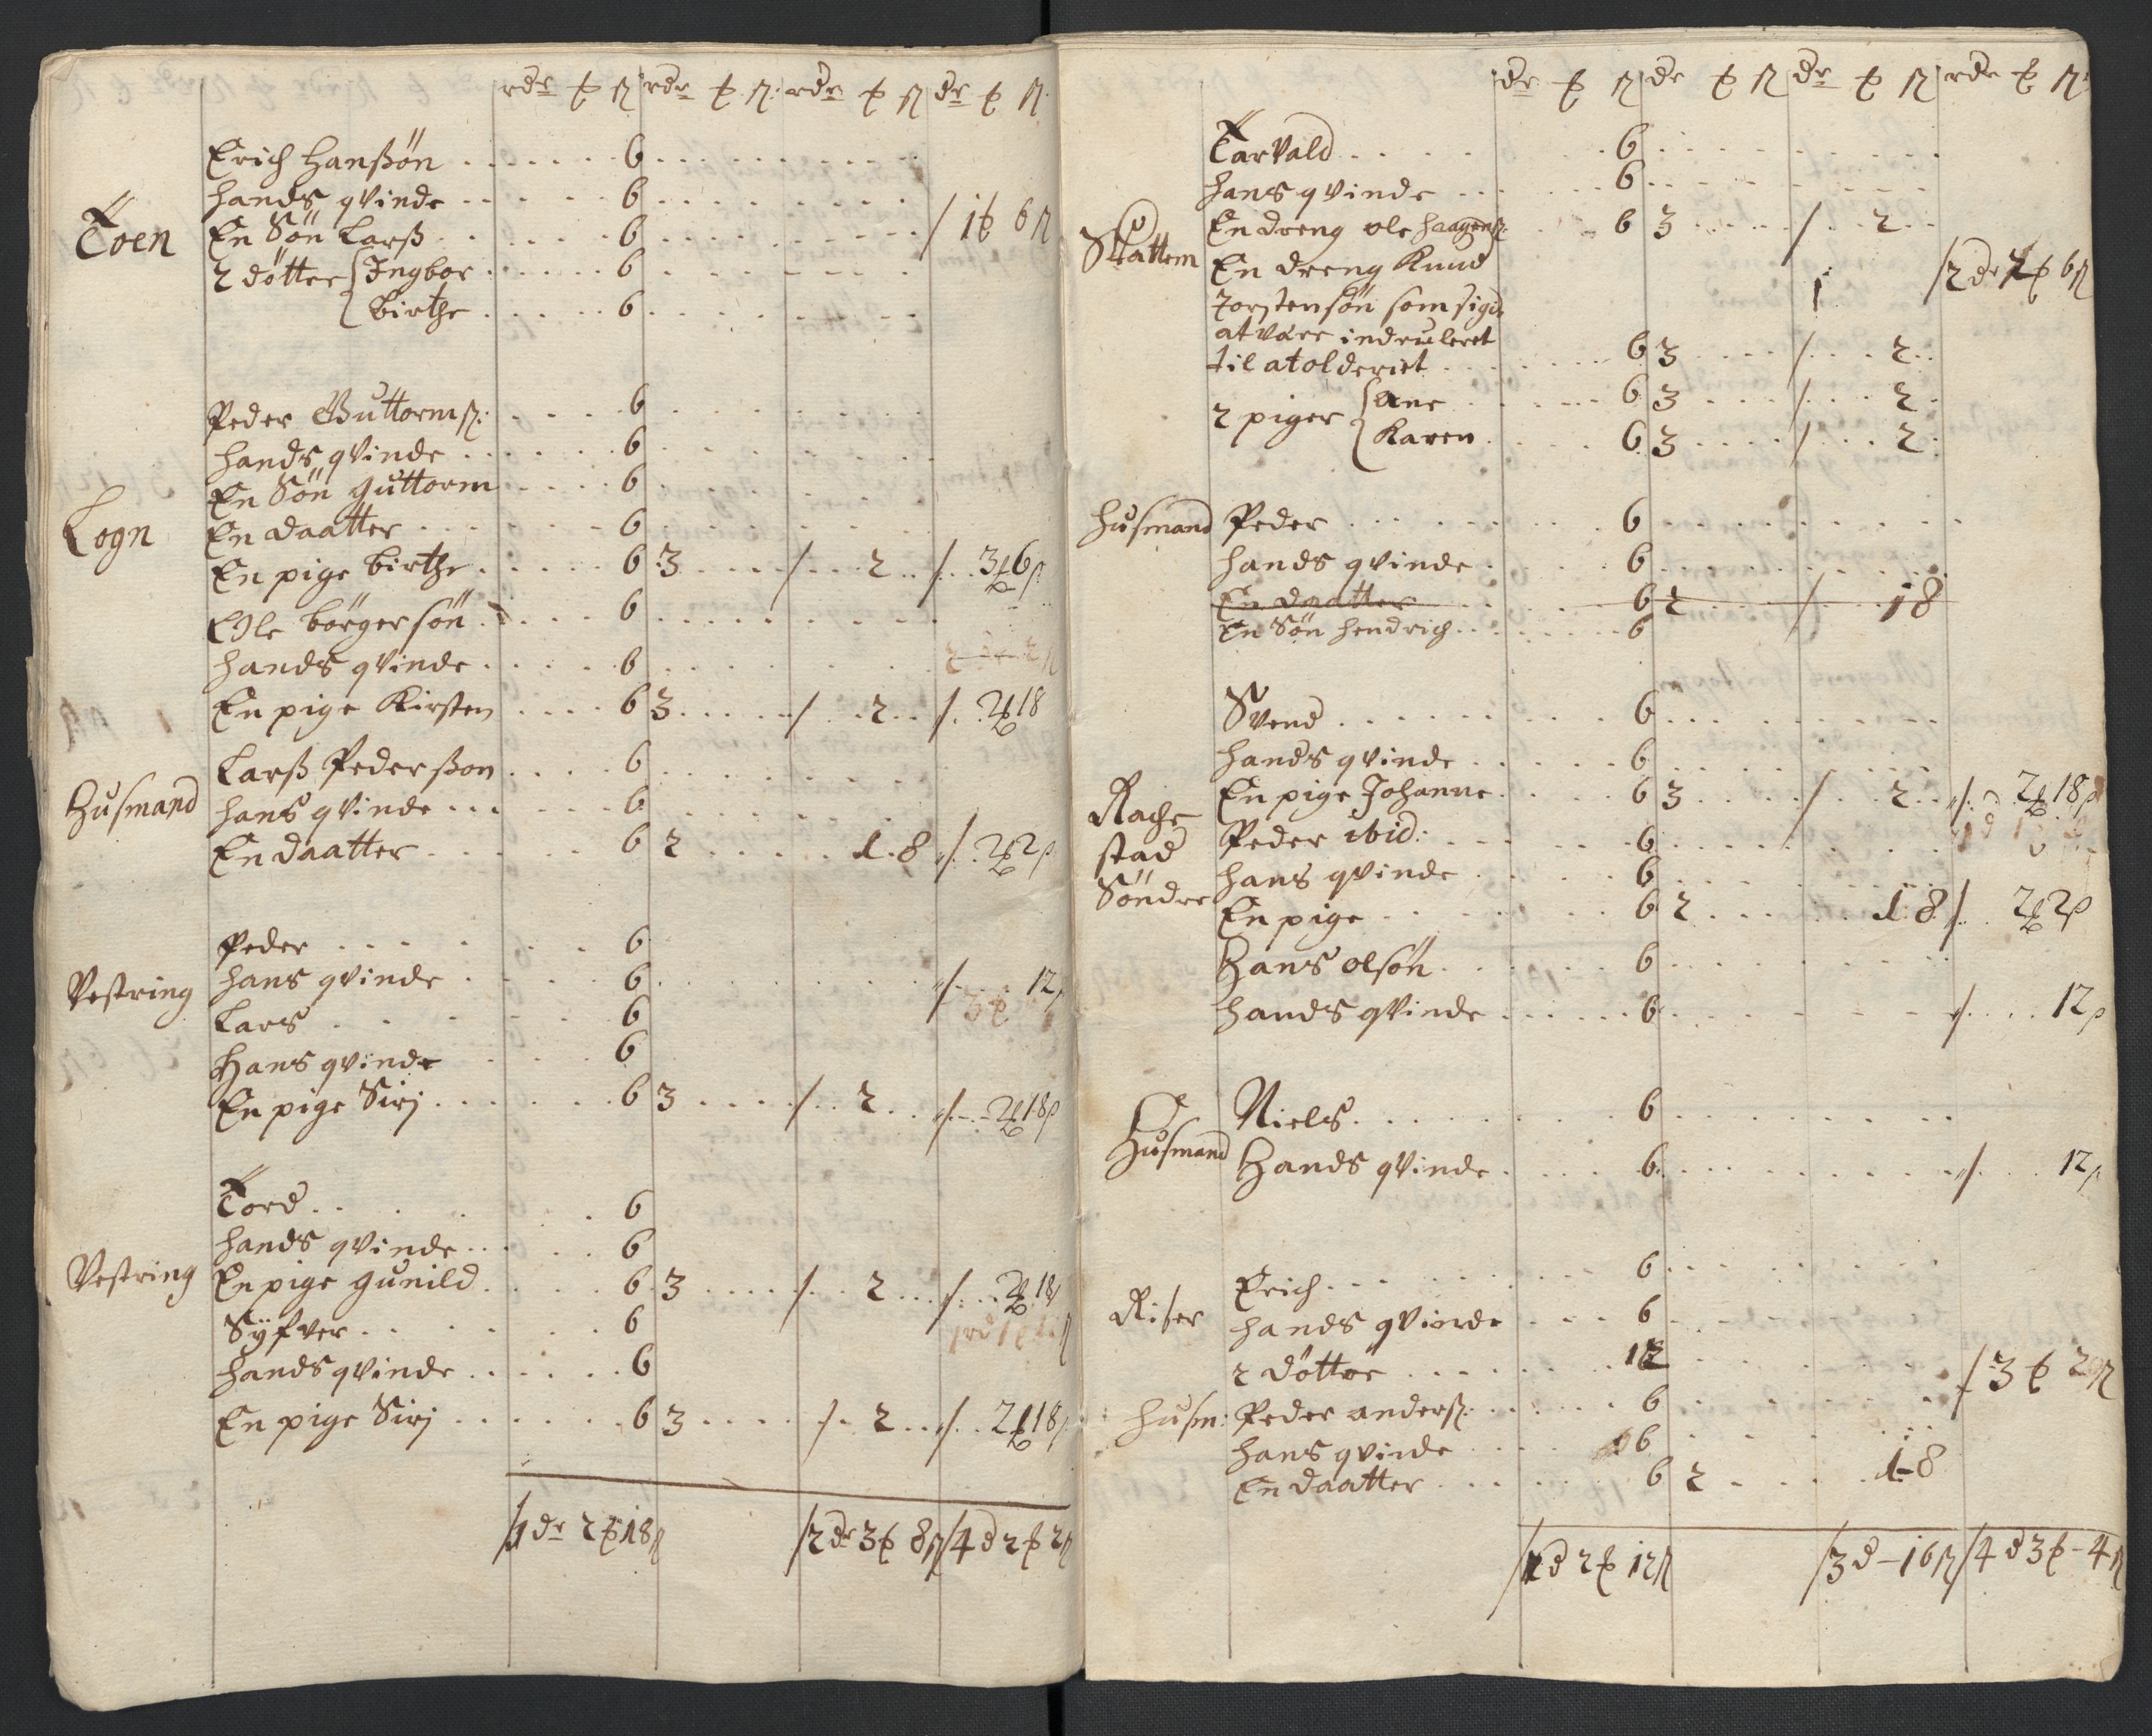 rdr ꝑ ß rdr ꝑ ß: rdr ꝑ ß dr ꝑ ß.
Erich Hanßön . . . . . . 6 . . . . . . . .
hands qvinde . . . . . 6 . . . . . . . .
Toen En Sön Larß . . . . . 6 . . . . . . . / 1ꝑ 6ß
2 dötter { Ingbor . . . . . 6 . . . . . .
{ Birthe . . . . . 6 . . . . . .
Peder Guttormß: . . . . 6 . . . . . .
hands qvinde . . . . . . 6 . . . . . .
En Sön Guttorm . . . . 6 . . . . . .
Logn En daatter . . . . . . 6 . . . . . .
En pige Birthe . . . . . 6 3 . . . . / . . . 2 . . / . . 3ꝑ 6ß
Ole börgersön . . . . . 6 . . . . . . . .
hands qvinde . . . . . 6 . . . . . .
En pige Kirsten . . . . 6 3 . . . . . / . . 2 . . / . . 2ꝑ 18
Larß Pederßon . . . . 6 . . . . . .
Husmand hans qvinde . . . . . 6 . . . . . .
En daatter . . . . . 6 2 . . . . . 1 . 8 / . . 2ꝑ 2ß
Peder . . . . . . . 6
Vestring hans qvinde . . . . . 6 . . . . . . . / . . . 12ß
Lars . . . . . . 6
Hans qvinde . . . . 6
En pige Sirj . . . . . . 6 3 . . . . / . . 2 . . / . . 2ꝑ 18ß
Tord . . . . . . 6
hands qvinde . . . . 6
Vestring En pige gunild . . . . 6 3 . . . . / . . 2 . . . / . . 2ꝑ 18ß
Syfver . . . . . . 6
hands qvinde . . . . . 6
En pige Sirj . . . . . . 6 3 . . . . / . 2 . . / . . 2ꝑ 18ß
/ 1 dr 2ꝑ 18ß / 2 dr 3ꝑ 8ß / 4 d 2ꝑ 2ß
dr ꝑ ß dr ꝑ ß dr ꝑ ß rdr ꝑ ß:
Tarvald . . . . . . 6 . . . . . . .
hans qvinde . . . . . 6 . . . . . . .
Skattem En dreng ole haagenß: . . 6 3 . . . . / . . 2 . .
En dreng Knud / 2 dr 2ꝑ 6ß
Torstensön som sigis 1
at være indruleret
til atolderiet . . . . . . . 6 3 . . . . / . . . 2 . .
2 piger { Ane . . . . . 6 3 . . . . / . . . 2 .
{ Karen . . . . . 6 3 . . . . / . . . 2 .
husmand Peder . . . . . . . . 6 . . . . . . . .
hands qvinde . . . . . 6 . . . . . . .
En daatter . . . . . 6 2 . . . . / . . . 18
En Sön Hendrich . . . . . . 6
Svend . . . . . . . . 6 . . . . . . . .
hands qvinde . . . . . 6 . . . . . .
Rache En pige Johanne . . . . 6 3 . . . . / . . 2 . . / . . 2ꝑ 18ß
stad Peder ibid: . . . . . . 6 . . . . . .
Söndre hans qvinde . . . . . 6 . . . . . .
En pige . . . . . . 6 2 . . . . . 1 . 8 / . . 2ꝑ 2ß
Hans olsön . . . . . . 6 . . . . . . .
hands qvinde . . . . . . 6 . . . . . . . / . . . . 12ß
Niels . . . . . . . . 6 . . . . . . .
Husmand Hands qvinde . . . . 6 . . . . . . . . / . . . 12ß
Erich . . . . . . . . 6 . . . . . . .
Riser hands qvinde . . . 6 . . . . . .
2 dötter . . . . . . 12 . . . . . . / 3ꝑ 20ß
husm: Peder andersß: . . . . . 6 . . . . . . .
hans qvinde . . . . 6 . . . . . .
En daatter . . . . . 6 2 . . . . . 1-8
/ 2 d 2ꝑ 12ß / 3 d – 16ß / 4 d 3ꝑ – 4ß